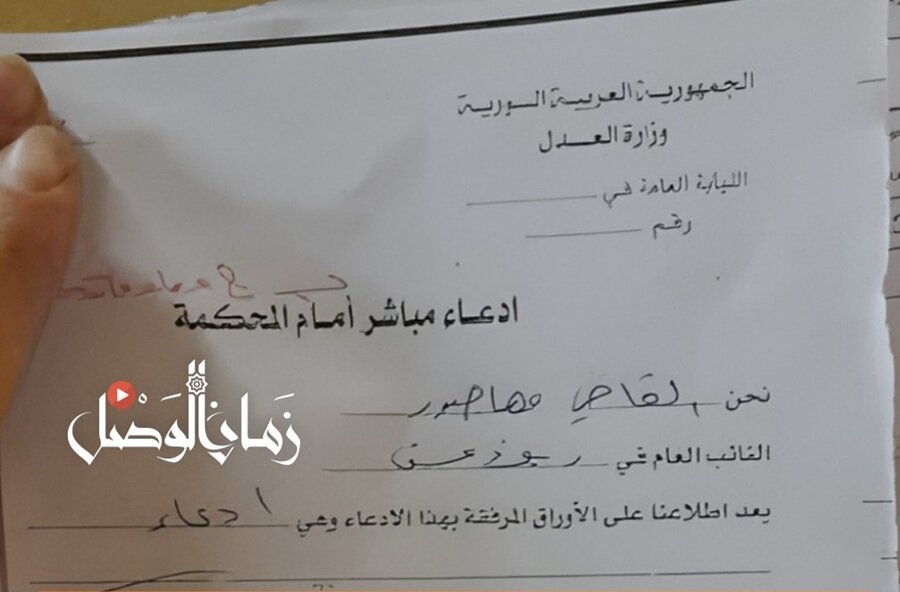 الجمهورية العربية السورية
وزارة العدل
النيابة العامة في
رقم
ادعاء مباشر أمام المحكمة
زمان الوصل
نحن القاضي مها صبور
النائب العام في
بعد اطلاعنا على الأوراق المرفقة بهذا الادعاء وهي ادعاء